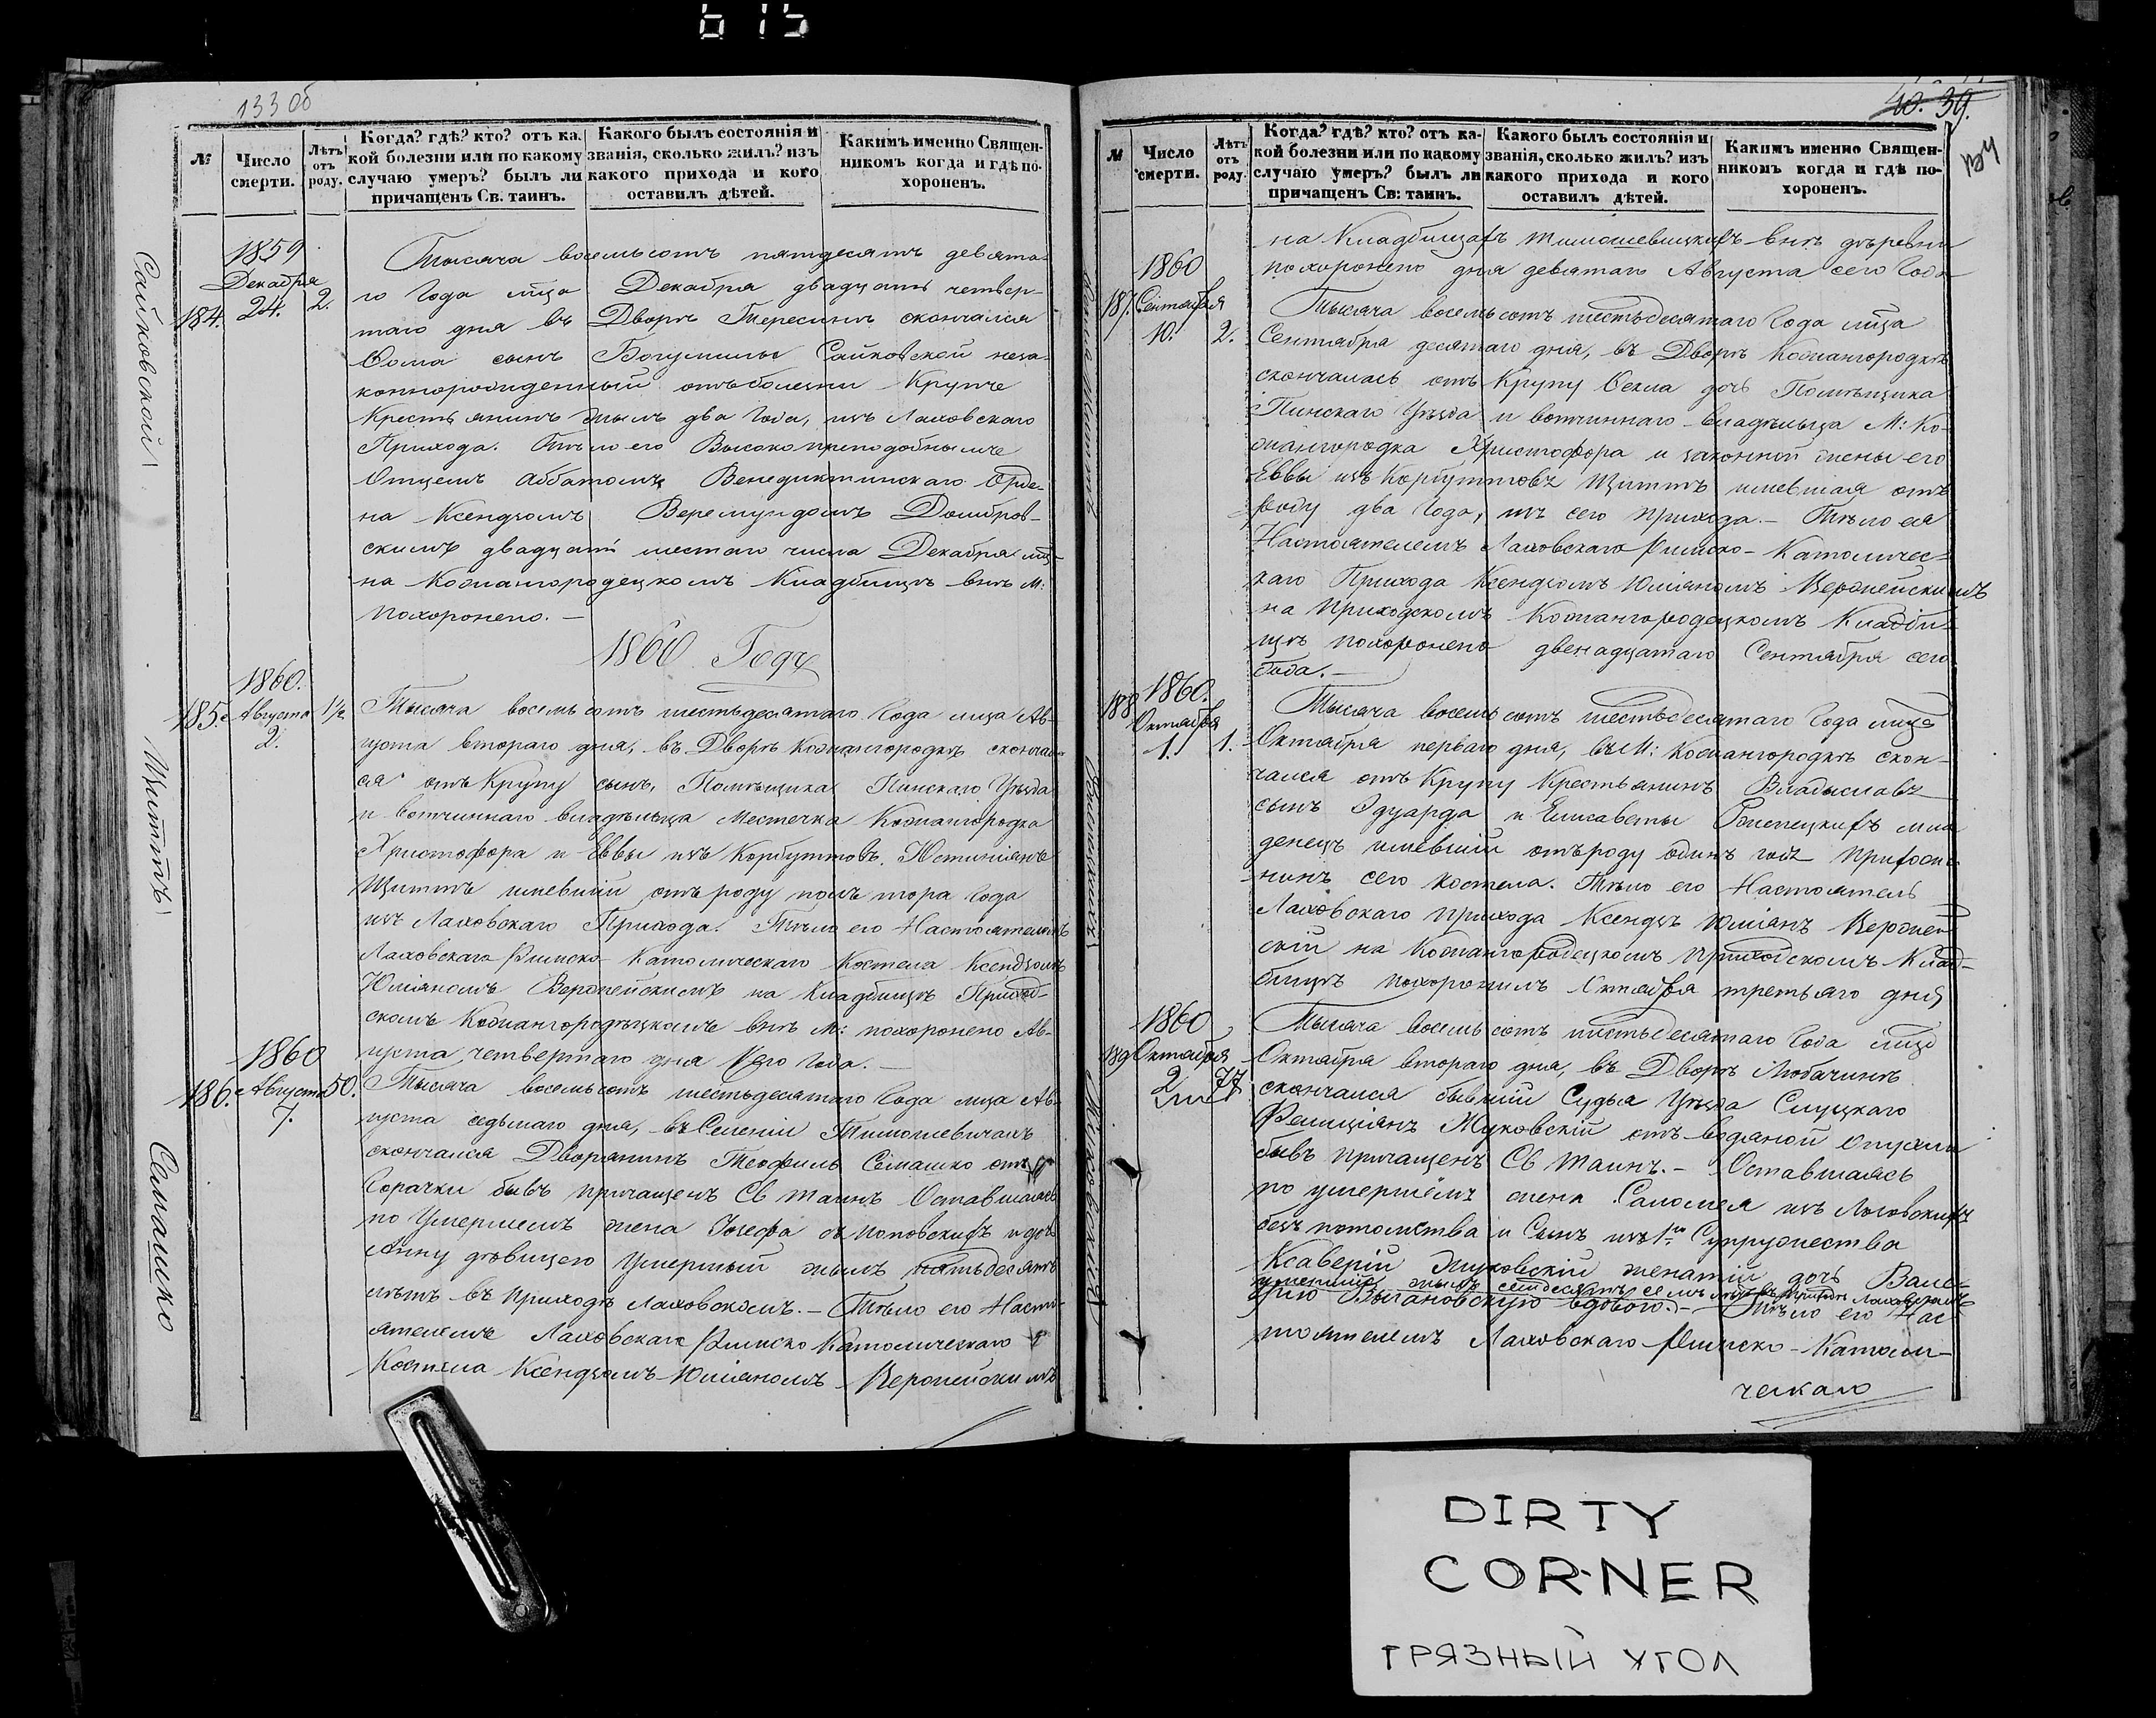 615
133 об
№
Число смерти.
Лѣтъ отъ роду.
Когда? гдѣ? кто? отъ ка-
кой болезни или по какому
случаю умеръ? былъ ли
причащенъ Св. таинъ.
Какого былъ состоянія и
званія, сколько жилъ? изъ
какого прихода и кого
оставилъ дѣтей.
Какимъ именно Священ-
никомъ когда и гдѣ по-
хороненъ.
Сайковской
184.
1859
Декабря
24.
2.
Тысяча восемьсотъ пятдесятъ девята-
го Года мца Декабря двадцать четвер-
таго дня въ Дворѣ Тересинѣ скончался
Ѳома сынъ Богумилы Сайковской неза-
коннорожденный отъ болезни Крупъ
Крестьянинъ жилъ два Года, изъ Лаховскаго
Прихода. Тѣло его Высокопреподобнымъ
Отцемъ Аббатомъ Бенедиктинскаго Орде-
на Ксендзомъ Веремундомъ Домбров-
скимъ двадцать шестаго числа Декабря мца
на Кожангородецкомъ Кладбищѣ внѣ М:
похоронено. —
1860 Годъ
Щиттъ
185.
1860.
Августа
2.
1 1/2
Тысяча восемьсотъ шестьдесятаго Года мца Ав-
густа втораго дня, въ Дворѣ Кожангородкѣ скончал-
ся отъ Крупу сынъ, Помѣщика Пинскаго Уѣзда
и вотчиннаго владѣльца Местечка Кожангородка
Христофора и Еввы изъ Корбуттовъ, Юстиніянъ
Щиттъ имевшій отъ роду полъ тора Года
изъ Лаховскаго Прихода. Тѣло его Настоятелемъ
Лаховскаго Римско-Католическаго Костела Ксендзомъ
Юліяномъ Веропейскимъ на Кладбищѣ Приход-
скомъ Кожангородѣцкомъ внѣ М: похоронено Ав-
густа четвертаго дня сего Года. —
Семашко
186.
1860
Августа
7.
50.
Тысяча восемьсотъ шестьдесятаго Года мца Ав-
густа седьмаго дня, въ Селеніи Тимошевичахъ
скончался Дворянинъ Теофиль Семашко отъ
Горачки бывъ причащенъ Св Таинъ Оставшаяся
по Умершемъ жена Іозефа зъ Поповскихъ и дочь
Анну дѣвицею Умершый жилъ пятьдесятъ
лѣтъ въ приходѣ Лаховскомъ. — Тѣло его Насто-
ятелемъ Лаховскаго Римско Католическаго
Костела Ксендзомъ Юліяномъ Веропейскимъ
40. 39.
134
№
Число смерти.
Лѣтъ отъ роду.
Когда? гдѣ? кто? отъ ка-
кой болезни или по какому
случаю умеръ? былъ ли
причащенъ Св: таинъ.
Какого былъ состоянія и
званія, сколько жилъ? изъ
какого прихода и кого
оставилъ дѣтей.
Какимъ именно Священ-
никомъ когда и гдѣ по-
хороненъ.
на Кладбищахъ Тимошевицкихъ внѣ деревни
похоронено дня девятаго Августа сего Года
187.
1860
Сентября
10.
2.
Тысяча восемьсотъ шестьдесятаго Года мца
Сентября десятаго дня, въ Дворѣ Кожангородкѣ
скончалась отъ Крупу Ѳекла дочь Помѣщика
Пинскаго Уѣзда и вотчиннаго владѣльца М: Ко-
жангородка Христофора и законной жены его
Еввы изъ Корбуттовъ Щиттъ имевшая отъ
роду два Года, изъ сего прихода. — Тѣло ея
Настоятелемъ Лаховскаго Римско-Католичес-
каго Прихода Ксендзомъ Юліяномъ Веропейскимъ
на Приходскомъ Кожангородецкомъ Кладби-
щѣ похоронено двенадцатаго Сентября сего
Года. —
188
1860.
Октября
1.
1.
Тысяча восемьсотъ шестьдесятаго Года мца
Октября перваго дня, въ М: Кожангородкѣ скон-
чался отъ Крупу Крестьянинъ Владыславъ
сынъ Эдуарда и Елисаветы мла
денецъ имевшій отъ роду одинъ годъ Прихожа-
нинъ сего Костела. Тѣло его Настоятель
Лаховскаго прихода Ксендзъ Юліянъ Веропей-
скій на Кожангородецкомъ Приходскомъ Клад-
бищѣ похоронилъ Октября третьяго дня
189
1860
Октября
2
77
Тысяча восемьсотъ шестьдесятаго Года мца
Октября втораго дня, въ Дворѣ Любачинѣ
скончался бывшій Судья Уѣзда Слуцкаго
Фелиціянъ Жуковскій отъ водяной опухли
бывъ причащенъ Св Таинъ. — Оставшаясь
по умершемъ жена Саломея изъ
безъ потомства и Сынъ изъ 1го Супружества
Ксаверій Жуковскій женатій дочь Вале-
умершій жилъ семдесятъ семь лѣтъ въ приходѣ Лаховскомъ
рію Выгановскую вдовою. — Тѣло его Нас
тоятелемъ Лаховскаго Римско-Католи-
ческаго
DIRTY
CORNER
ГРЯЗНЫЙ УГОЛ